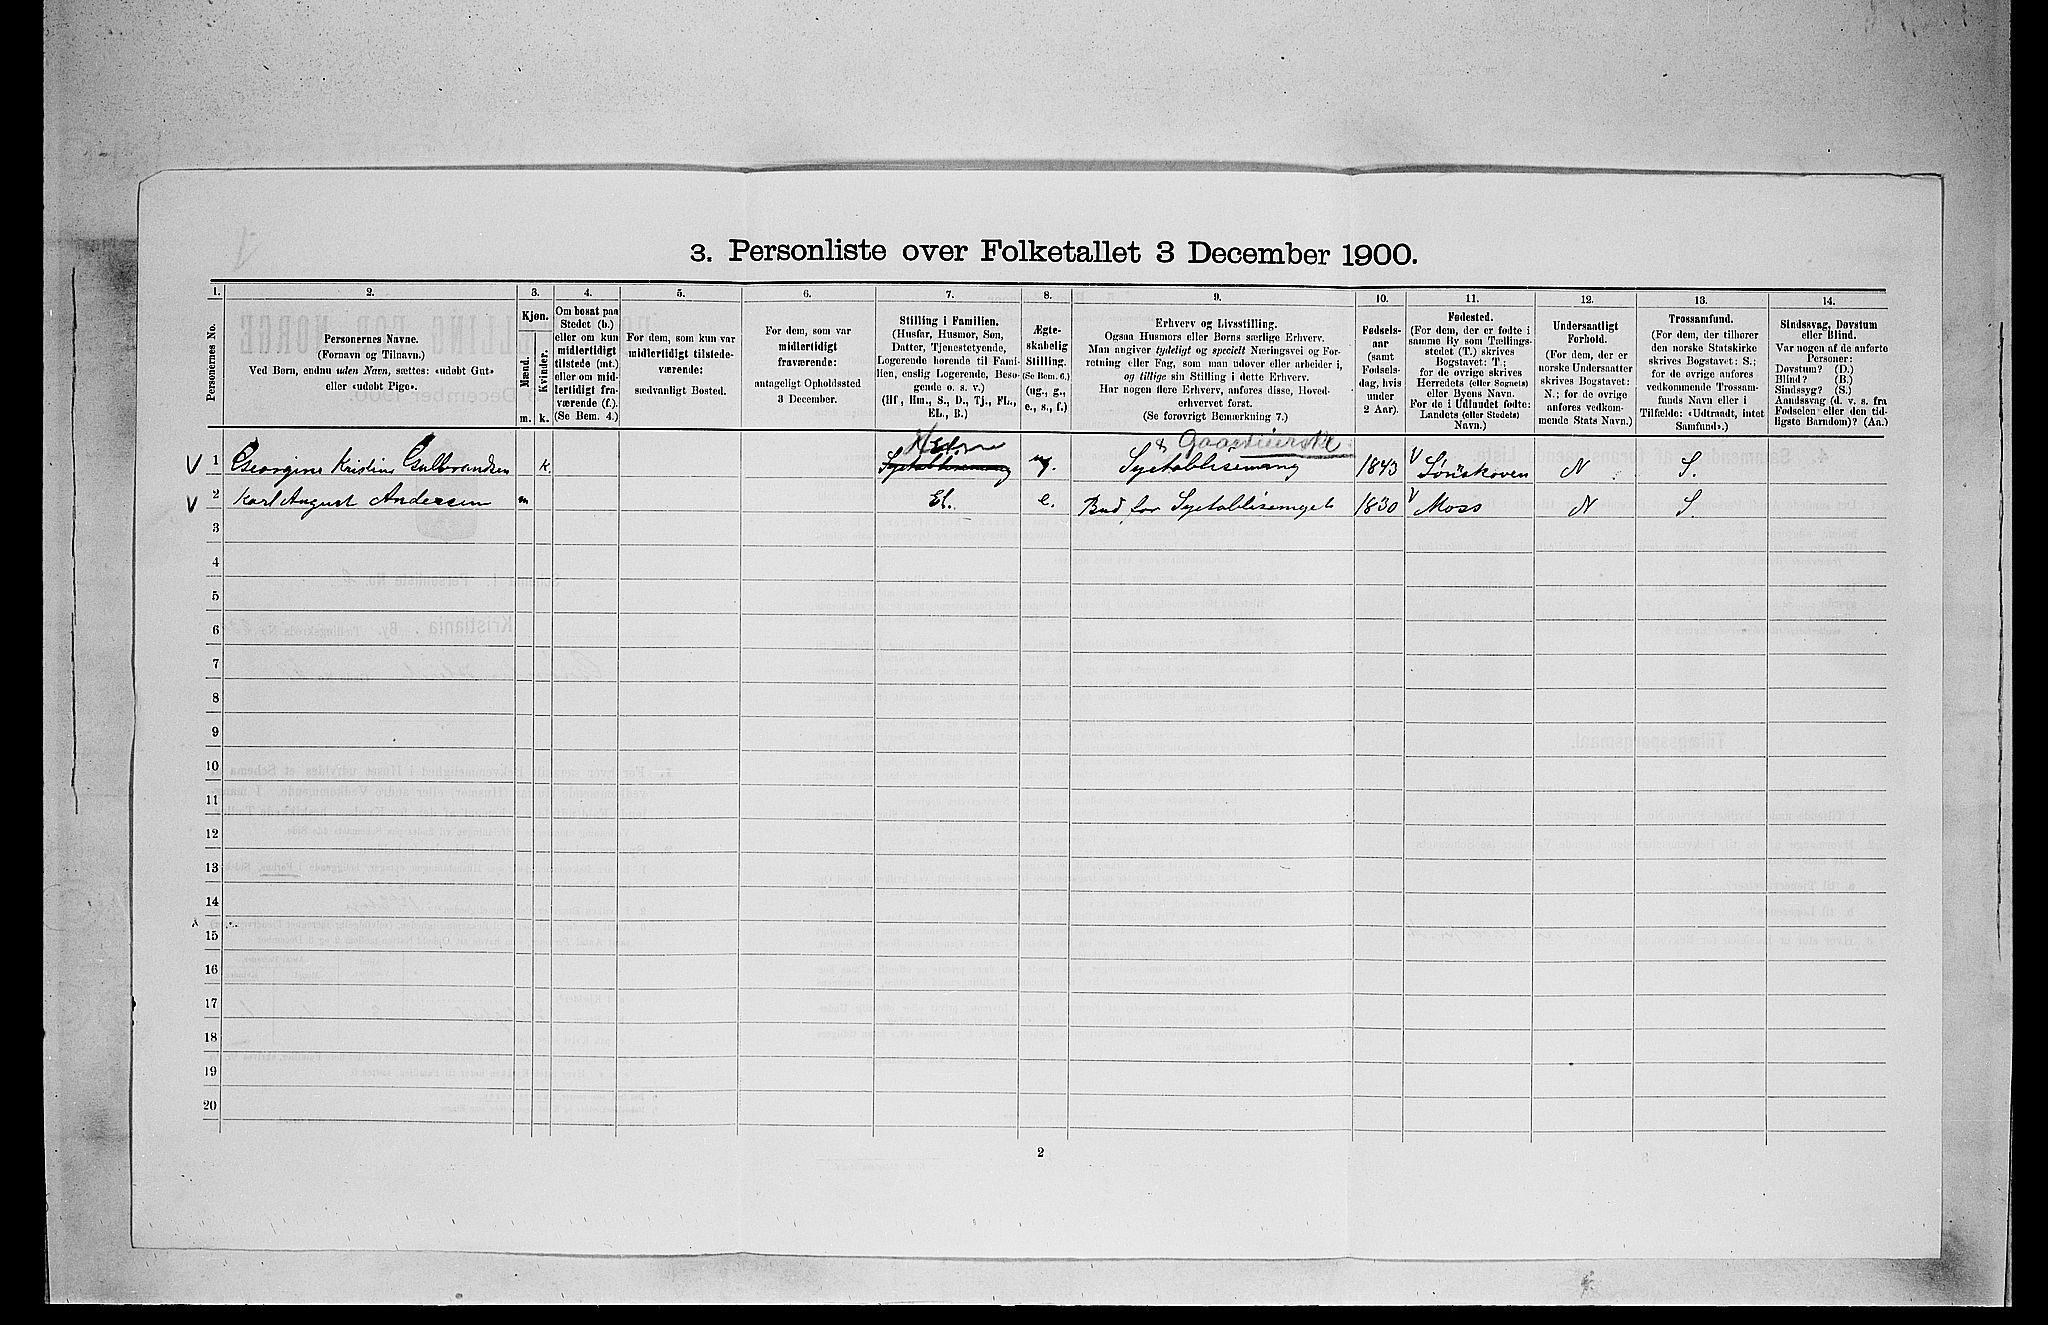 3. Personliste over Folketallet 3 December 1900.
1. 2. 3. 4. 5. 6. 7. 8. 9. 10. 11. 12. 13. 14.
Personernes No.
Personernes Navne.
(Fornavn og Tilnavn.)
Ved Børn, endnu uden Navn, sættes: «udøbt Gut»
eller «udøbt Pige».
Kjøn.
Mænd.
Kvinder.
m. k.
Om bosat paa
Stedet (b.)
eller om kun
midlertidigt
tilstede (mt.)
eller om mid-
lertidigt fra-
værende (f.).
(Se Bem. 4.)
For dem, som kun var
midlertidigt tilstede-
værende:
sædvanligt Bosted.
For dem, som var
midlertidigt
fraværende:
antageligt Opholdssted
3 December.
Stilling i Familien.
(Husfar, Husmor, Søn,
Datter, Tjenestetyende,
Logerende hørende til Fami-
lien, enslig Logerende, Besø-
gende o. s. v.)
(Hf., Hm., S., D., Tj., FL.,
EL., B.)
Ægte-
skabelig
Stilling.
(Se Bem. 6.)
(ug., g.,
e., s., f.)
Erhverv og Livsstilling.
Ogsaa Husmors eller Børns særlige Erhverv.
Man angiver tydeligt og specielt Næringsvei og For-
retning eller Fag, som man udøver eller arbeider i,
og tillige sin Stilling i dette Erhverv.
Har nogen flere Erhverv, anføres disse, Hoved-
erhvervet først.
(Se forøvrigt Bemærkning 7.)
Fødsels-
aar
(samt
Fødsels-
dag, hvis
under
2 Aar).
Fødested.
(For dem, der er fødte i
samme By som Tællings-
stedet (T.) skrives
Bogstavet: T;
for de øvrige skrives
Herredets (eller Sognets)
eller Byens Navn.
For de i Udlandet fødte:
Landets (eller Stedets)
Navn.)
Undersaatligt
Forhold.
(For dem, der er
norske Undersaatter
skrives Bogstavet:
N.; for de øvrige
anføres vedkom-
mende Stats Navn.)
Trossamfund.
(For dem, der tilhører
den norske Statskirke
skrives Bogstavet: S.;
for de øvrige anføres
vedkommende Trossam-
funds Navn eller i
Tilfælde: «Udtraadt, intet
Samfund».)
Sindssvag, Døvstum
eller Blind.
Var nogen af de anførte
Personer:
Døvstum? (D.)
Blind? (B.)
Sindssyg? (S.)
Aandssvag (d. v. s. fra
Fødselen eller den tid-
ligste Barndom)? (Aa.)
V 1 Georgine Kristine Gulbrandsen k. Syetablisemang ug. Syetablisemang 1843 V N S.
V 2 Karl August Andersen m El. e. Bud for Syetablisemget 1830 V Moss N S.
3
4
5
6
7
8
9
10
11
12
13
14
15
16
17
18
19
20
2